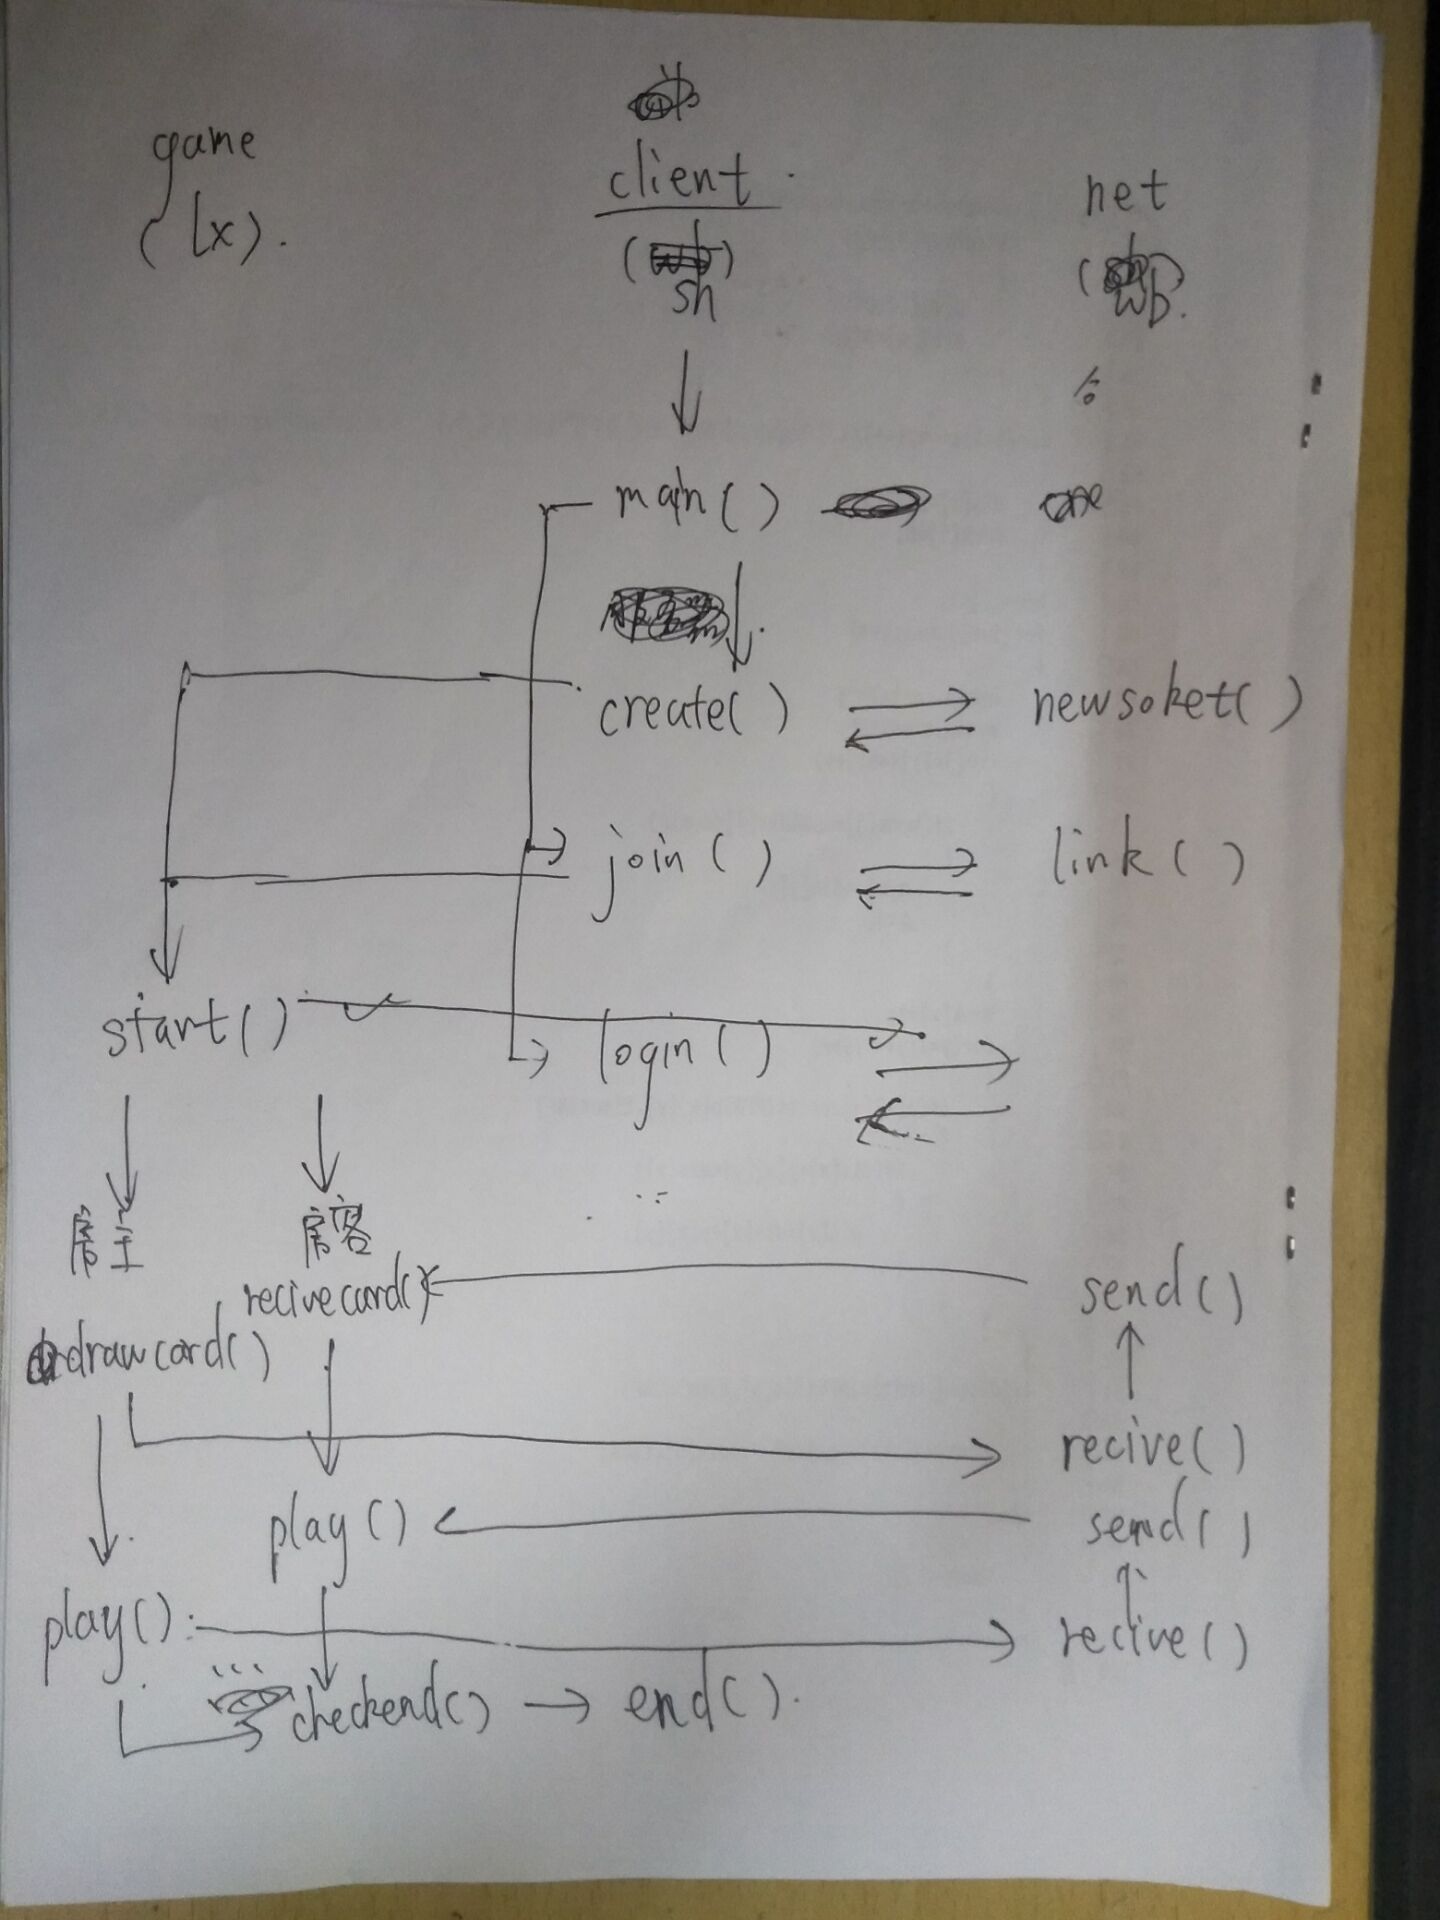 game
(lx).
client
(
)
sh
net
(
)
wb.
main()
one
create()
newsoket()
join()
link()
start()
login()
房主
房客
recivecard()
send()
drawcard()
recive()
play()
send()
play()
recive()
checkend()
end().